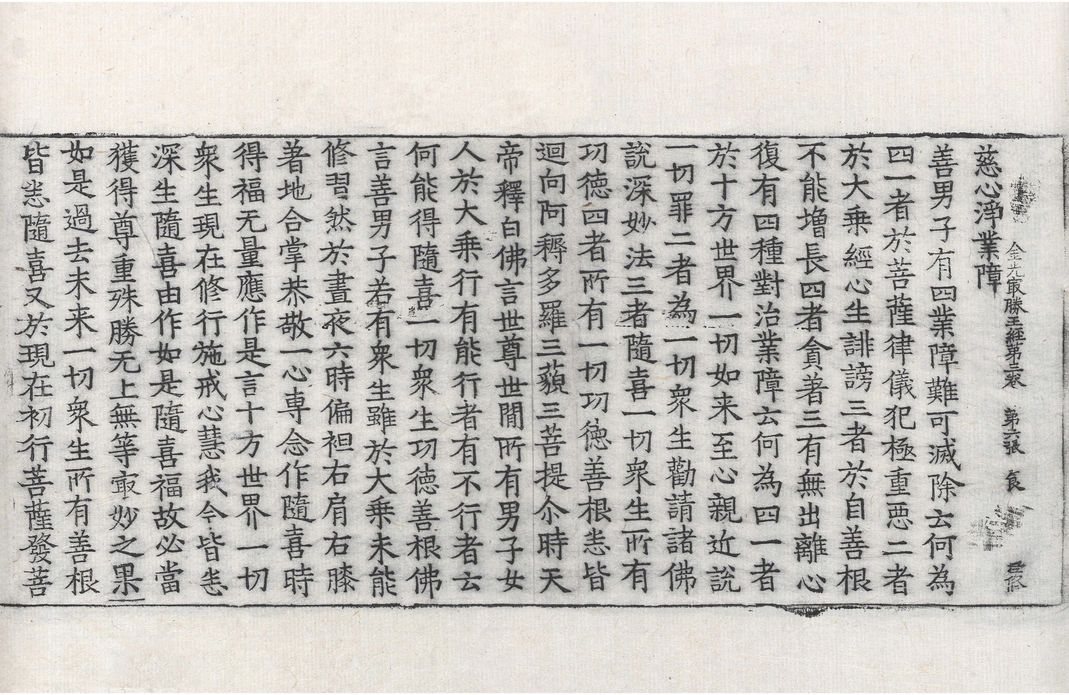 金光㝡勝王經第三卷 第六張 食
慈心淨業障
善男子有四業障難可滅除云何為
四一者於菩薩律儀犯極重惡二者
於大乘經心生誹謗三者於自善根
不能增長四者貪著三有無出離心
復有四種對治業障云何為四一者
於十方世界一切如来至心親近說
一切罪二者為一切衆生勸請諸佛
說深妙法三者隨喜一切衆生所有
功德四者所有一切功德善根悉皆
迴向阿耨多羅三藐三菩提尒時天
帝釋白佛言世尊世閒所有男子女
人於大乘行有能行者有不行者云
何能得隨喜一切衆生功德善根佛
言善男子若有衆生雖於大乘未能
修習然於晝夜六時偏袒右肩右膝
著地合掌恭敬一心専念作隨喜時
得福无量應作是言十方世界一切
衆生現在修行施戒心慧我今皆悉
深生隨喜由作如是隨喜福故必當
獲得尊重殊勝无上無等㝡妙之果
如是過去未来一切衆生所有善根
皆悉隨喜又於現在初行菩薩發菩